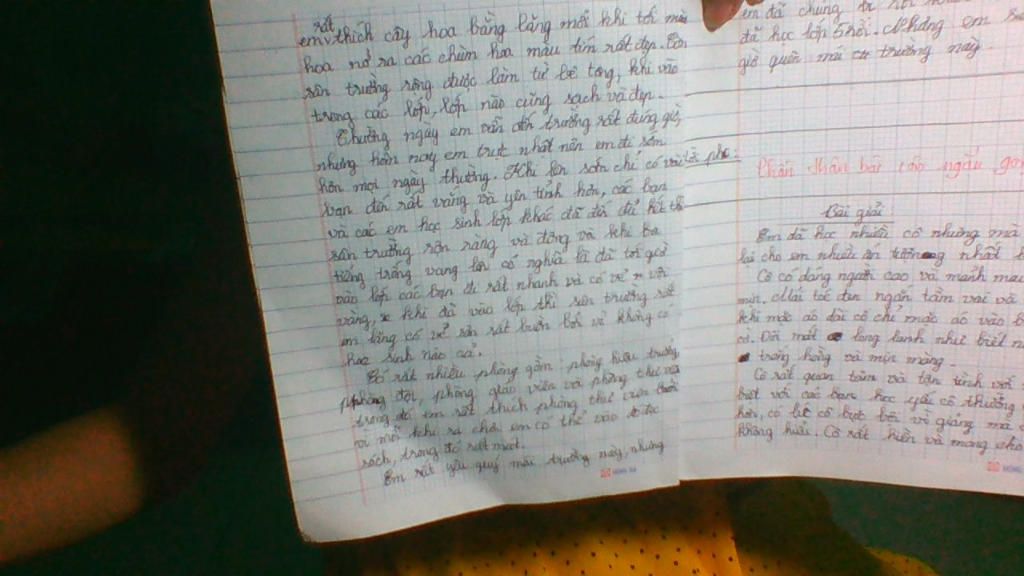 rất
em thích cây hoa bằng lăng mỗi khi tới mùa
hoa nở ra các chùm hoa màu tím rất đẹp. Còn
sân trường rộng được làm từ bê tông, khi vào
trong các lớp, lớp nào cũng sạch và đẹp.
Thường ngày em vẫn đến trường rất đúng giờ,
nhưng hôm nay em trực nhật nên em đi sớm
hơn mọi ngày thường. Khi lên sân chỉ có vài
bạn đến rất vắng và yên tĩnh hơn, các bạn
và các em học sinh lớp khác đã đến đủ hết
sân trường rộn ràng và đông vã khi ba
tiếng trống vang lên có nghĩa là đã tới giờ
vào lớp các bạn đi rất nhanh và có vẻ vội
vàng, khi đã vào lớp thì sân trường rất
im lặng có vẻ sân rất buồn bởi vì không có
học sinh nào cả.
Có rất nhiều phòng gồm, phòng hiệu trưởng,
phòng đội, phòng giáo viên và phòng thư viện
trong đó em rất thích phòng thư viện
vì mỗi khi ra chơi em có thể vào đọc
sách, trong đó rất mát.
Em rất yêu quý mái trường này, nhưng
HỒNG HÀ
em đã chúng
đã học lớp 5 rồi. Nhưng em
giờ quên mái trường này.
Phần thân bài
Bài giải
Em đã học nhiều cô nhưng mà
lại cho em nhiều ấn tượng nhất
Cô có dáng người cao và mảnh mai
mịn. Mái tóc đen ngắn tầm vai và
khi mặc áo dài cô chỉ mặc áo vào
cờ. Đôi mắt long lanh như biết
trắng hồng và mịn màng.
Cô rất quan tâm và tận tình với
biệt với các bạn học yếu cô thường
hơn, có lúc cô bực bội vì giảng mà
không hiểu. Cô rất hiền và mang cho
HỒNG